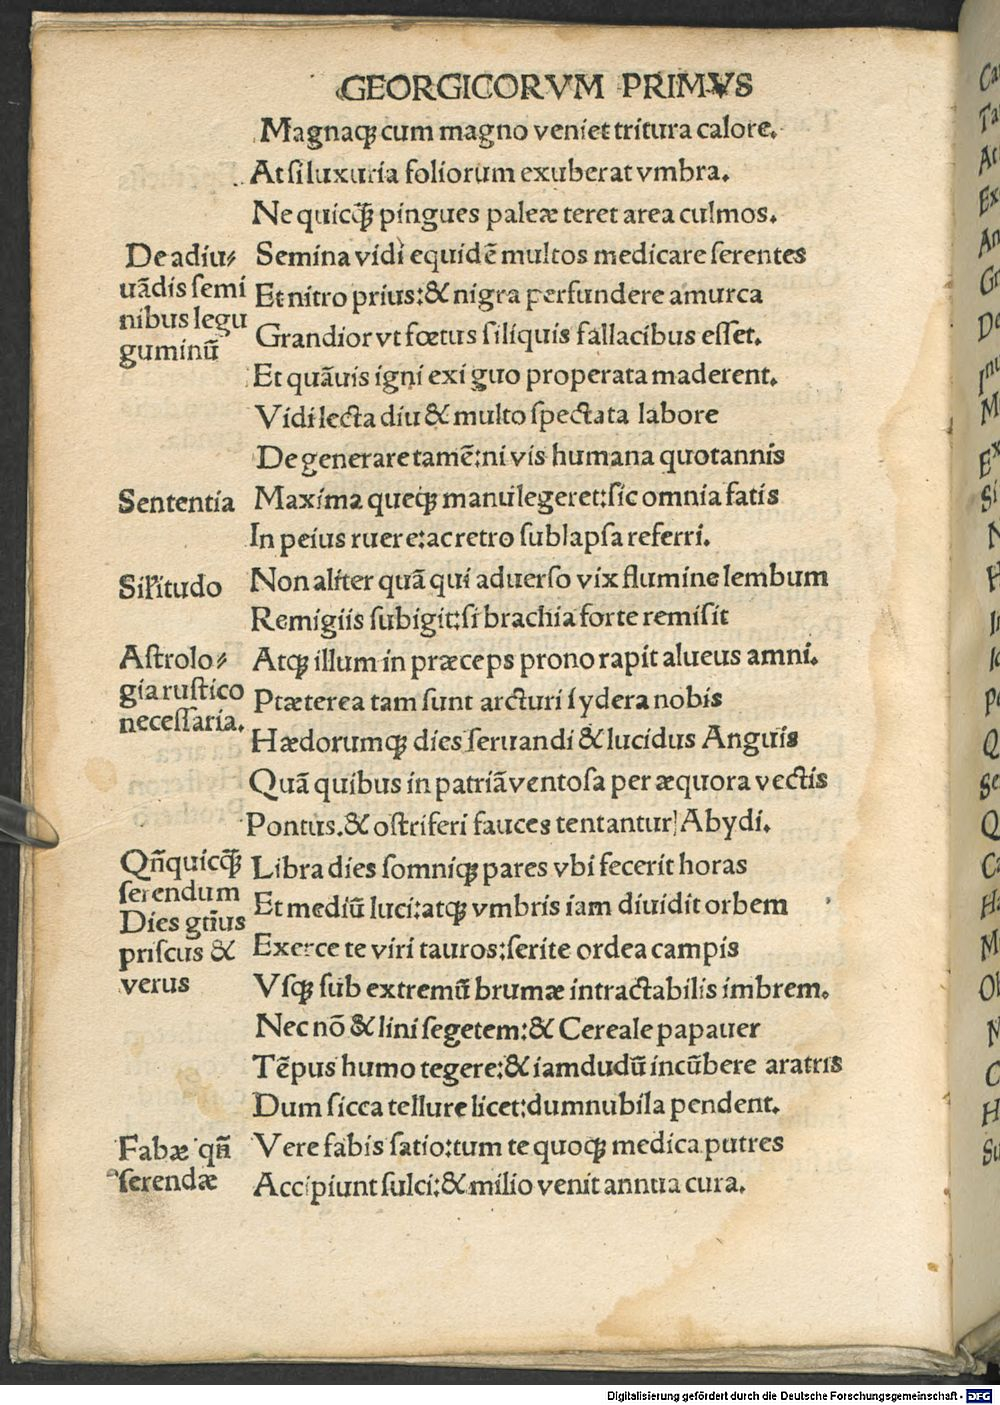 GEORGICORVM PRIMVS
Magnaqꝫ cum magno veniet tritura calore.
At si luxuria foliorum exuberat vmbra.
Ne quicqꝫ̃ pingues paleæ teret area culmos.
De adiu⸗
uãdis semi
nibus legu
guminũ
Semina vidi equidẽ multos medicare serentes
Et nitro prius:& nigra perfundere amurca
Grandior vt fœtus siliquis fallacibus esset.
Et quãuis igni exi guo properata maderent.
Vidi lecta diu & multo spectata labore
Degenerare tamẽ:ni vis humana quotannis
Sententia
Maxima queqꝫ manu legeret:sic omnia fatis
In peius ruere:ac retro sublapsa referri.
Sil̃itudo
Non aliter quã qui aduerso vix flumine lembum
Remigiis subigit:si brachia forte remisit
Astrolo⸗
gia rustico
necessaria.
Atqꝫ illum in præceps prono rapit alueus amni.
Ptæterea tam sunt arcturi sydera nobis
Hædorumqꝫ dies seruandi & lucidus Anguis
Quã quibus in patriã ventosa per æquora vectis
Pontus.& ostriferi fauces tentantur Abydi.
Qñ quicqꝫ̃
serendum
Dies gtĩus
priscus &
verus
Libra dies somniqꝫ pares vbi fecerit horas
Et mediũ luci:atqꝫ vmbris iam diuidit orbem
Exerce te viri tauros:serite ordea campis
Vsqꝫ sub extremũ brumæ intractabilis imbrem.
Nec nõ & lini segetem:& Cereale papauer
Tẽpus humo tegere:& iamdudũ incũbere aratris
Dum sicca tellure licet:dum nubila pendent.
Fabæ qñ
serendæ
Vere fabis satio:tum te quoqꝫ medica putres
Accipiunt sulci:& milio venit annua cura.
Digitalisierung gefördert durch die Deutsche Forschungsgemeinschaft - DFG